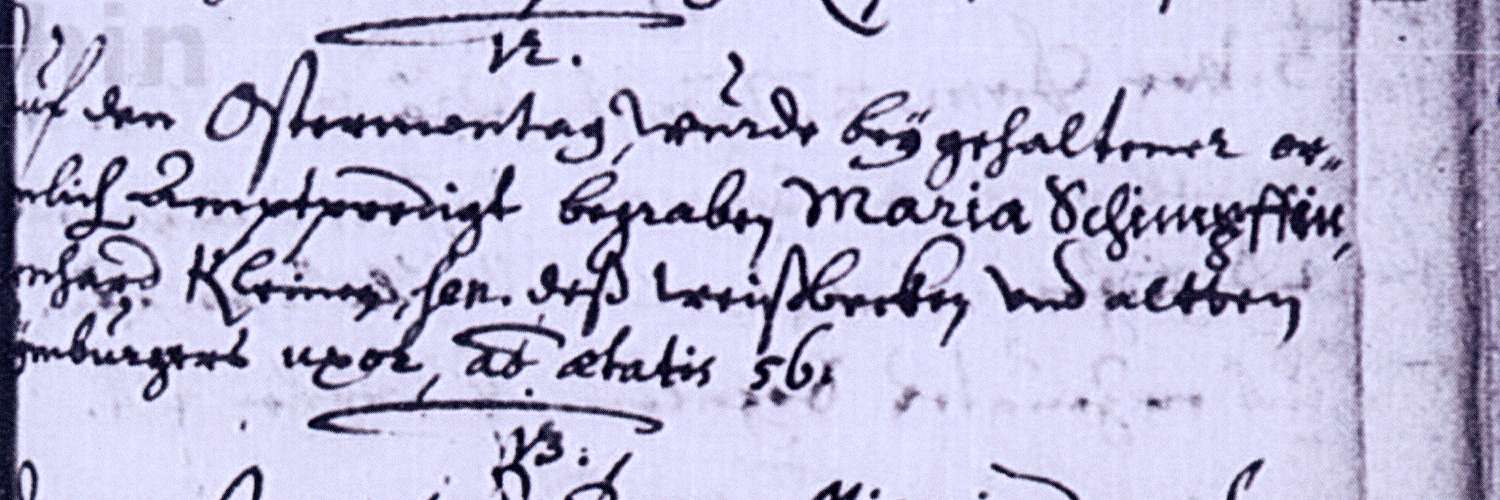 12.
auf den Ostermontag, wurde beÿ gehaltener or-
nlich Amptpredigt begraben Maria Schimpffin,
nhard Kleinen, sen. deß weißbecken vnd altten
ÿmburgers uxor, aõ ætatis 56.
13.